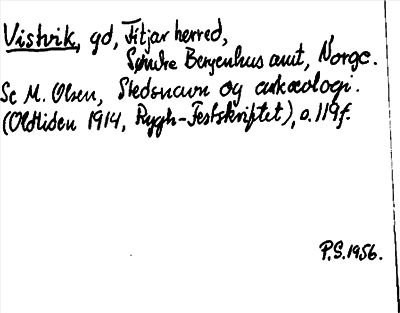 Vistvik, gd, Fitjar herred,
Søndre Bergenhus amt, Norge.
Se M. Olsen, Stedsnavn og arkæologi.
(Oldtiden 1914, Rygh-Festskriftet), s. 119f.
P.S. 1956.